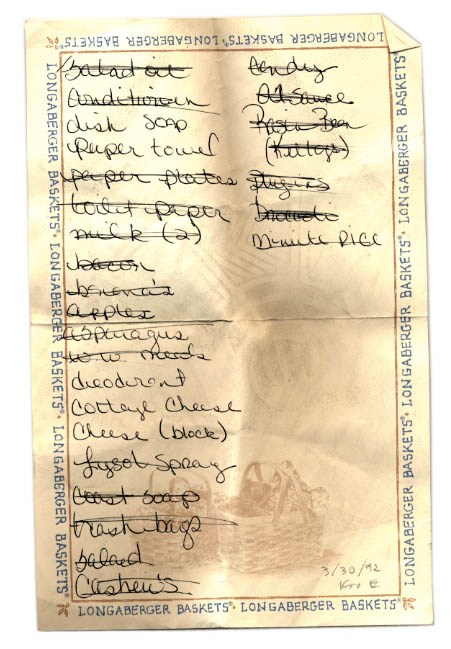 LONGABERGER BASKETS® · LONGABERGER BASKETS® · LONGABERGER BASKETS
Salad oil
Conditioner
dish soap
Paper towel
paper plates
toilet paper
milk (2)
bacon
banana's
apples
asparagus
w.w. meals
deodorant
Cottage Cheese
Cheese (block)
Lysol Spray
Coast soap
trash bags
Salad
Cashew's
Candy
Raisin Bran
(Kellogs)
Minute Rice
3/30/92
LONGABERGER BASKETS® · LONGABERGER BASKETS® · LONGABERGER BASKETS® · LONGABERGER BASKETS
LONGABERGER BASKETS® · LONGABERGER BASKETS® · LONGABERGER BASKETS®
LONGABERGER BASKETS® · LONGABERGER BASKETS®